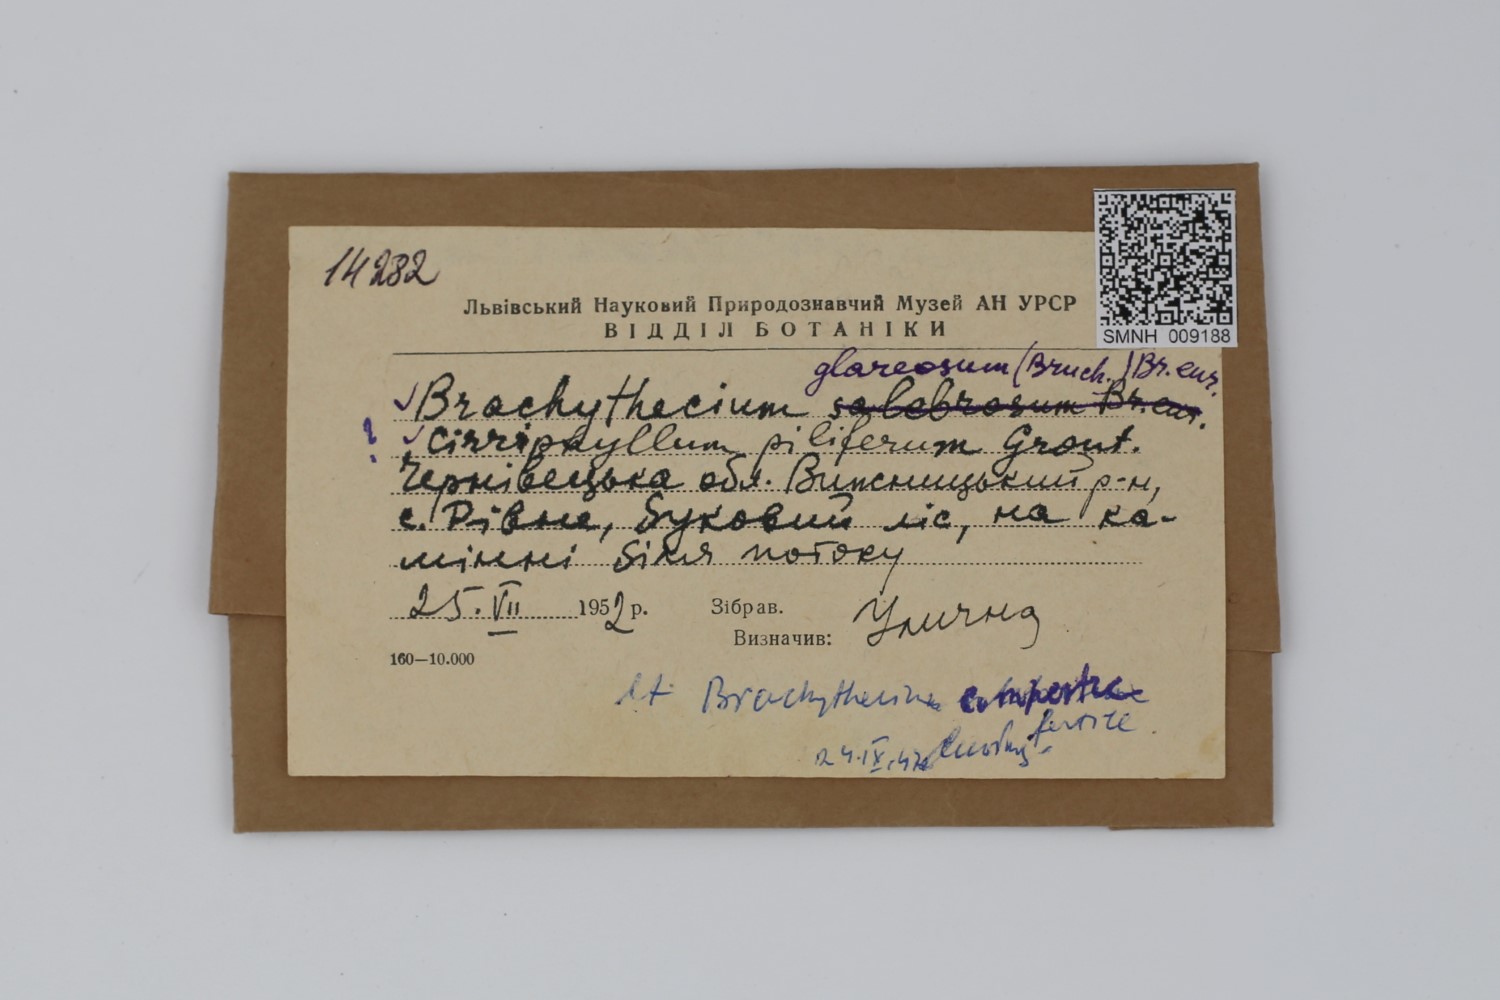 14282
Львівський Науковий Природознавчий Музей АН УРСР
ВІДДІЛ БОТАНІКИ
SMNH 009188
glareosum (Bruch.) Br. eur.
Brachythecium salebrosum Br. eur.
? Cirriphyllum piliferum Grout.
Чернівецька обл. Вижницький р-н,
с. Рівна, буковий ліс, на ка-
мінні біля потоку
25.VII 1952 р. Зібрав.
Визначив: Улична
160—10.000
Brachythecium campestre
24.IX.